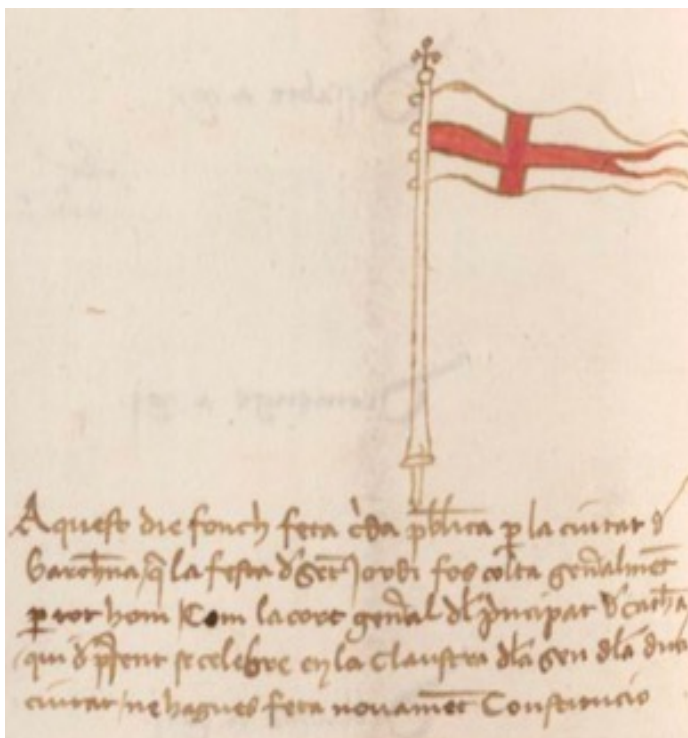 Aquest die fonch feta c̄da pb̄lica p̱ la ciutat d̄
barchn̄a / q̄ la festa d̄ Sc̄t Jordi fos colta gen̄alment̄
p̱ tot hom / Com la cort gen̄al dl̄ p̄ncipat d̄ cath̄a
qui d̄ p̄sent se celebre en la Claustra dl̄a Seu dl̄a dita
ciutat / ne hagues feta novament̄ Constitucio